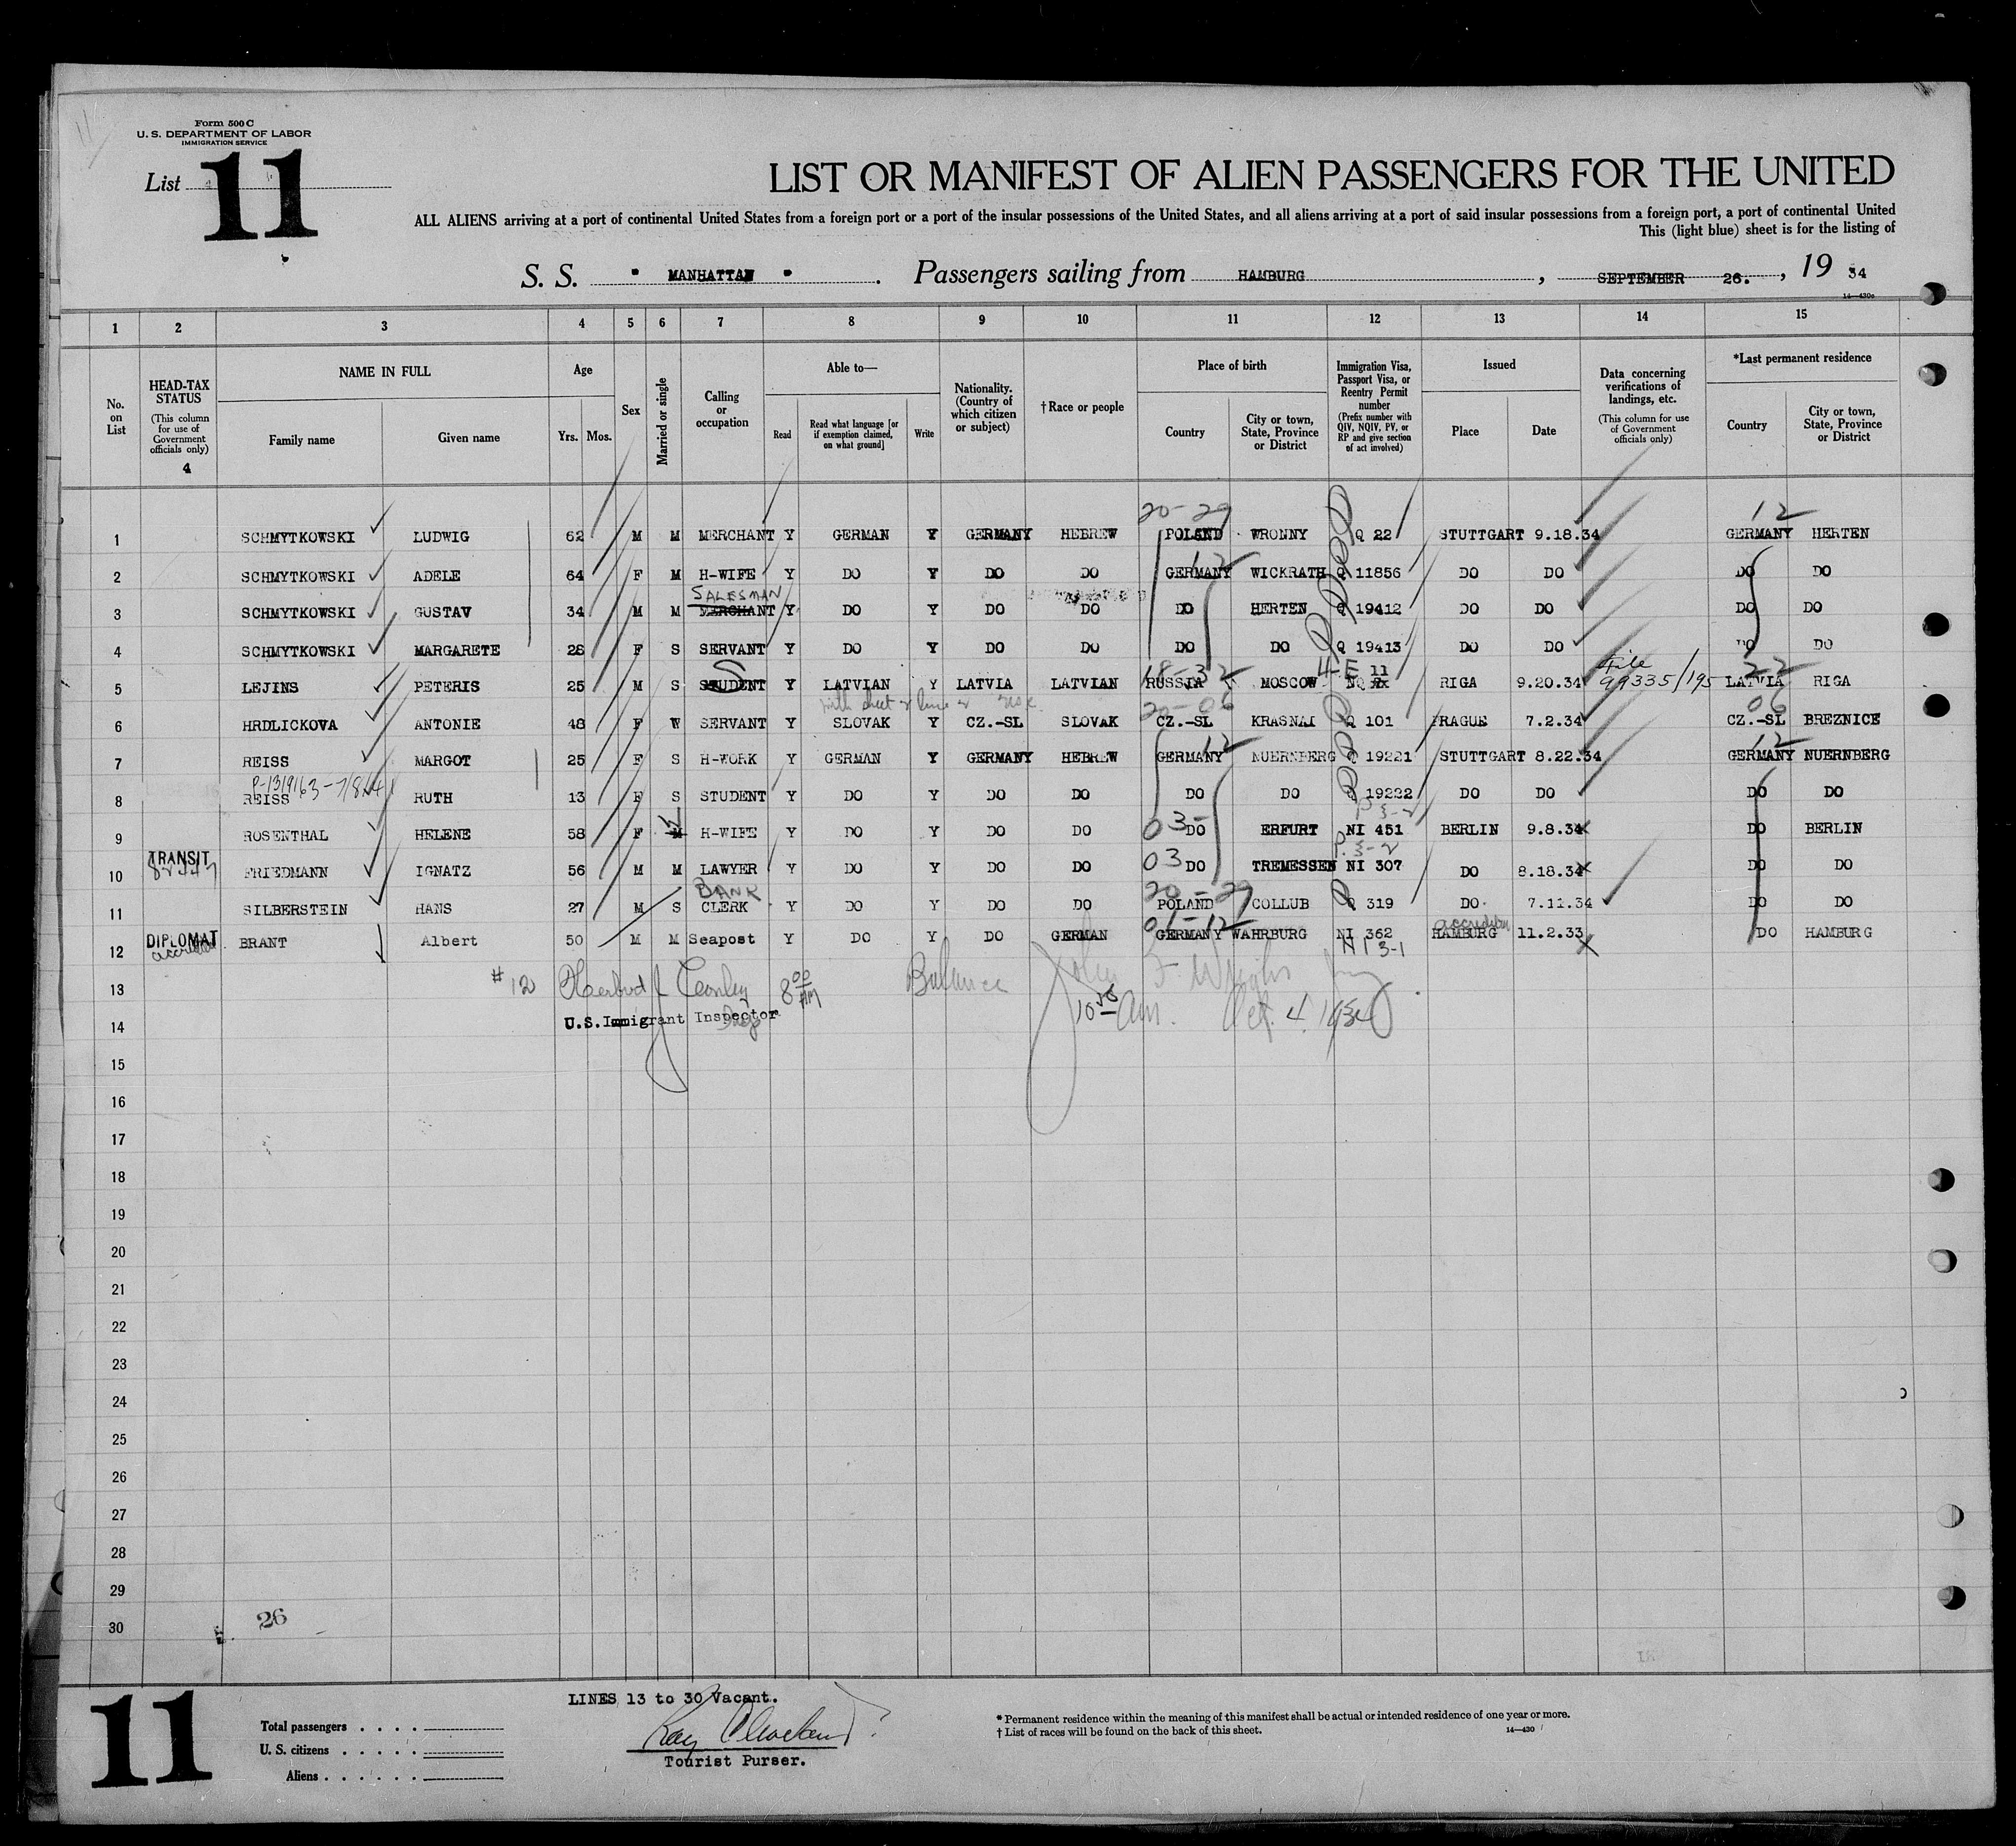 Form 500 C
U. S. DEPARTMENT OF LABOR
IMMIGRATION SERVICE
List 11
LIST OR MANIFEST OF ALIEN PASSENGERS FOR THE UNITED
ALL ALIENS arriving at a port of continental United States from a foreign port or a port of the insular possessions of the United States, and all aliens arriving at a port of said insular possessions from a foreign port, a port of continental United
This (light blue) sheet is for the listing of
S. S. " MANHATTAN " . Passengers sailing from HAMBURG , SEPTEMBER 26. , 19 34
14—430c
1 2 3 4 5 6 7 8 9 10 11 12 13 14 15
No. on List
HEAD-TAX STATUS (This column for use of Government officials only) 4
NAME IN FULL Family name Given name
Age Yrs. Mos.
Sex
Married or single
Calling or occupation
Able to— Read Read what language [or if exemption claimed, on what ground] Write
Nationality. (Country of which citizen or subject)
†Race or people
Place of birth Country City or town, State, Province or District
Immigration Visa, Passport Visa, or Reentry Permit number (Prefix number with QIV, NQIV, PV, or RP and give section of act involved)
Issued Place Date
Data concerning verifications of landings, etc. (This column for use of Government officials only)
*Last permanent residence Country City or town, State, Province or District
20-29 12
1 SCHMYTKOWSKI LUDWIG 62 M M MERCHANT Y GERMAN Y GERMANY HEBREW POLAND WRONNY Q 22 STUTTGART 9.18.34 GERMANY HERTEN
12
2 SCHMYTKOWSKI ADELE 64 F M H-WIFE Y DO Y DO DO GERMANY WICKRATH Q 11856 DO DO DO DO
SALESMAN
3 SCHMYTKOWSKI GUSTAV 34 M M MERCHANT Y DO Y DO DO DO HERTEN Q 19412 DO DO DO DO
4 SCHMYTKOWSKI MARGARETE 26 F S SERVANT Y DO Y DO DO DO DO Q 19413 DO DO DO DO
S 18-32 4-E 11 File 99335/195 22
5 LEJINS PETERIS 25 M S STUDENT Y LATVIAN Y LATVIA LATVIAN RUSSIA MOSCOW NQ RIGA 9.20.34 LATVIA RIGA
20-06 06
6 HRDLICKOVA ANTONIE 48 F W SERVANT Y SLOVAK Y CZ.-SL SLOVAK CZ.-SL KRASNAI Q 101 PRAGUE 7.2.34 CZ.-SL BREZNICE
12 12
7 REISS MARGOT 25 F S H-WORK Y GERMAN Y GERMANY HEBREW GERMANY NUERNBERG Q 19221 STUTTGART 8.22.34 GERMANY NUERNBERG
8 REISS RUTH 13 F S STUDENT Y DO Y DO DO DO DO Q 19222 DO DO DO DO
03- P 3-2
9 ROSENTHAL HELENE 58 F M H-WIFE Y DO Y DO DO DO ERFURT NI 451 BERLIN 9.8.34 DO BERLIN
TRANSIT 03 P. 3-2
10 FRIEDMANN IGNATZ 56 M M LAWYER Y DO Y DO DO DO TREMESSEN NI 307 DO 8.18.34 DO DO
BANK 20-29
11 SILBERSTEIN HANS 27 M S CLERK Y DO Y DO DO POLAND COLLUB Q 319 DO 7.11.34 DO DO
DIPLOMAT 01-12
12 BRANT Albert 50 M M Seapost Y DO Y DO GERMAN GERMANY WAHRBURG NI 362 HAMBURG 11.2.33 DO HAMBURG
NI 3-1
13 #12 8 00 AM Balance
14 U.S.Immigrant Inspector 10 Am. Oct. 4 1934
15
16
17
18
19
20
21
22
23
24
25
26
27
28
29
30
26
11
LINES 13 to 30 Vacant.
Total passengers
U. S. citizens
Aliens
Tourist Purser.
* Permanent residence within the meaning of this manifest shall be actual or intended residence of one year or more.
† List of races will be found on the back of this sheet.
14—430